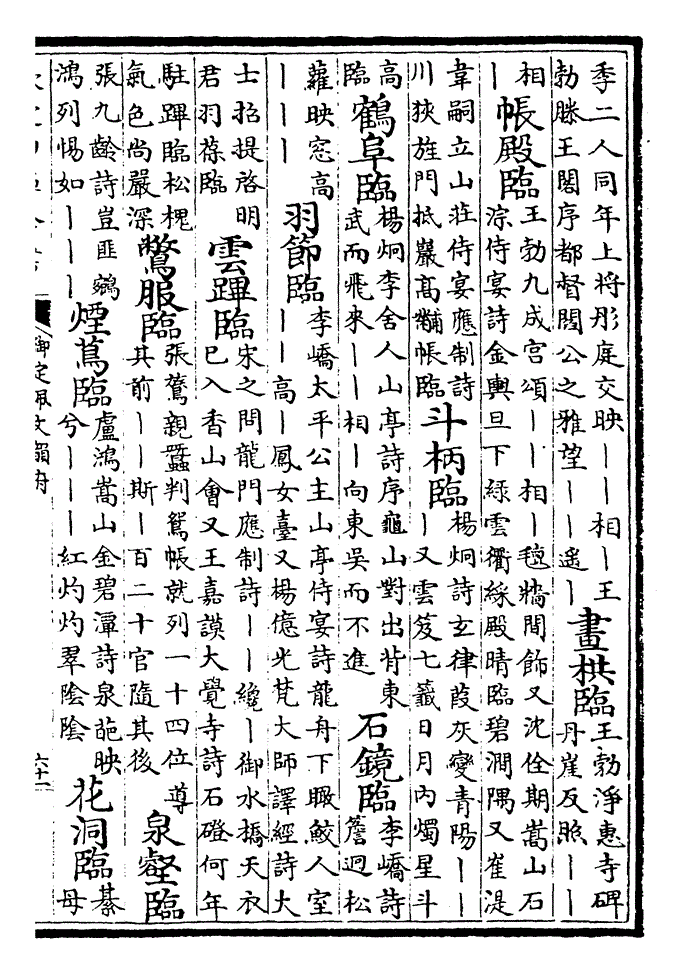 季二人同年上将彤庭交映丨丨相丨王
勃滕王閣序都督閻公之雅望丨丨遥丨
畫栱臨
王勃淨惠寺碑
丹崖反照丨丨
相
丨
帳殿臨
王勃九成宫頌丨丨相丨毯牆間飾又沈佺期嵩山石
淙侍宴詩金輿旦下緑雲衢綵殿晴臨碧澗隅又崔湜
韋嗣立山莊侍宴應制詩
川狹旌門抵巖髙黼帳臨
斗柄臨
楊炯詩玄律葭灰變青陽丨丨
丨又雲笈七籤日月内燭星斗
高
臨
鶴阜臨
楊炯李舍人山亭詩序龜山對出背東
武而飛來丨丨相丨向東吴而不進
石鏡臨
李嶠詩
簷迥松
蘿映窓高
丨丨丨
羽節臨
李嶠太平公主山亭侍宴詩龍舟下瞰鮫人室
丨丨髙丨鳳女臺又楊億光梵大師譯經詩大
士招提啓明
君羽葆臨
雲蹕臨
宋之問龍門應制詩丨丨纔丨御水橋天衣
已入香山會又王嘉謨大覺寺詩石磴何年
駐蹕臨松槐
氣色尚嚴深
鷩服臨
張鷟親蠶判鴛帳就列一十四位尊
其前丨丨斯丨百二十官隨其後
泉壑臨
張九齡詩豈匪鵷
鴻列惕如丨丨丨
煙蔦臨
盧鴻嵩山金碧潭詩泉葩映
兮丨丨丨紅灼灼翠陰陰
花洞臨
綦
母
御定佩文韻府
六十一